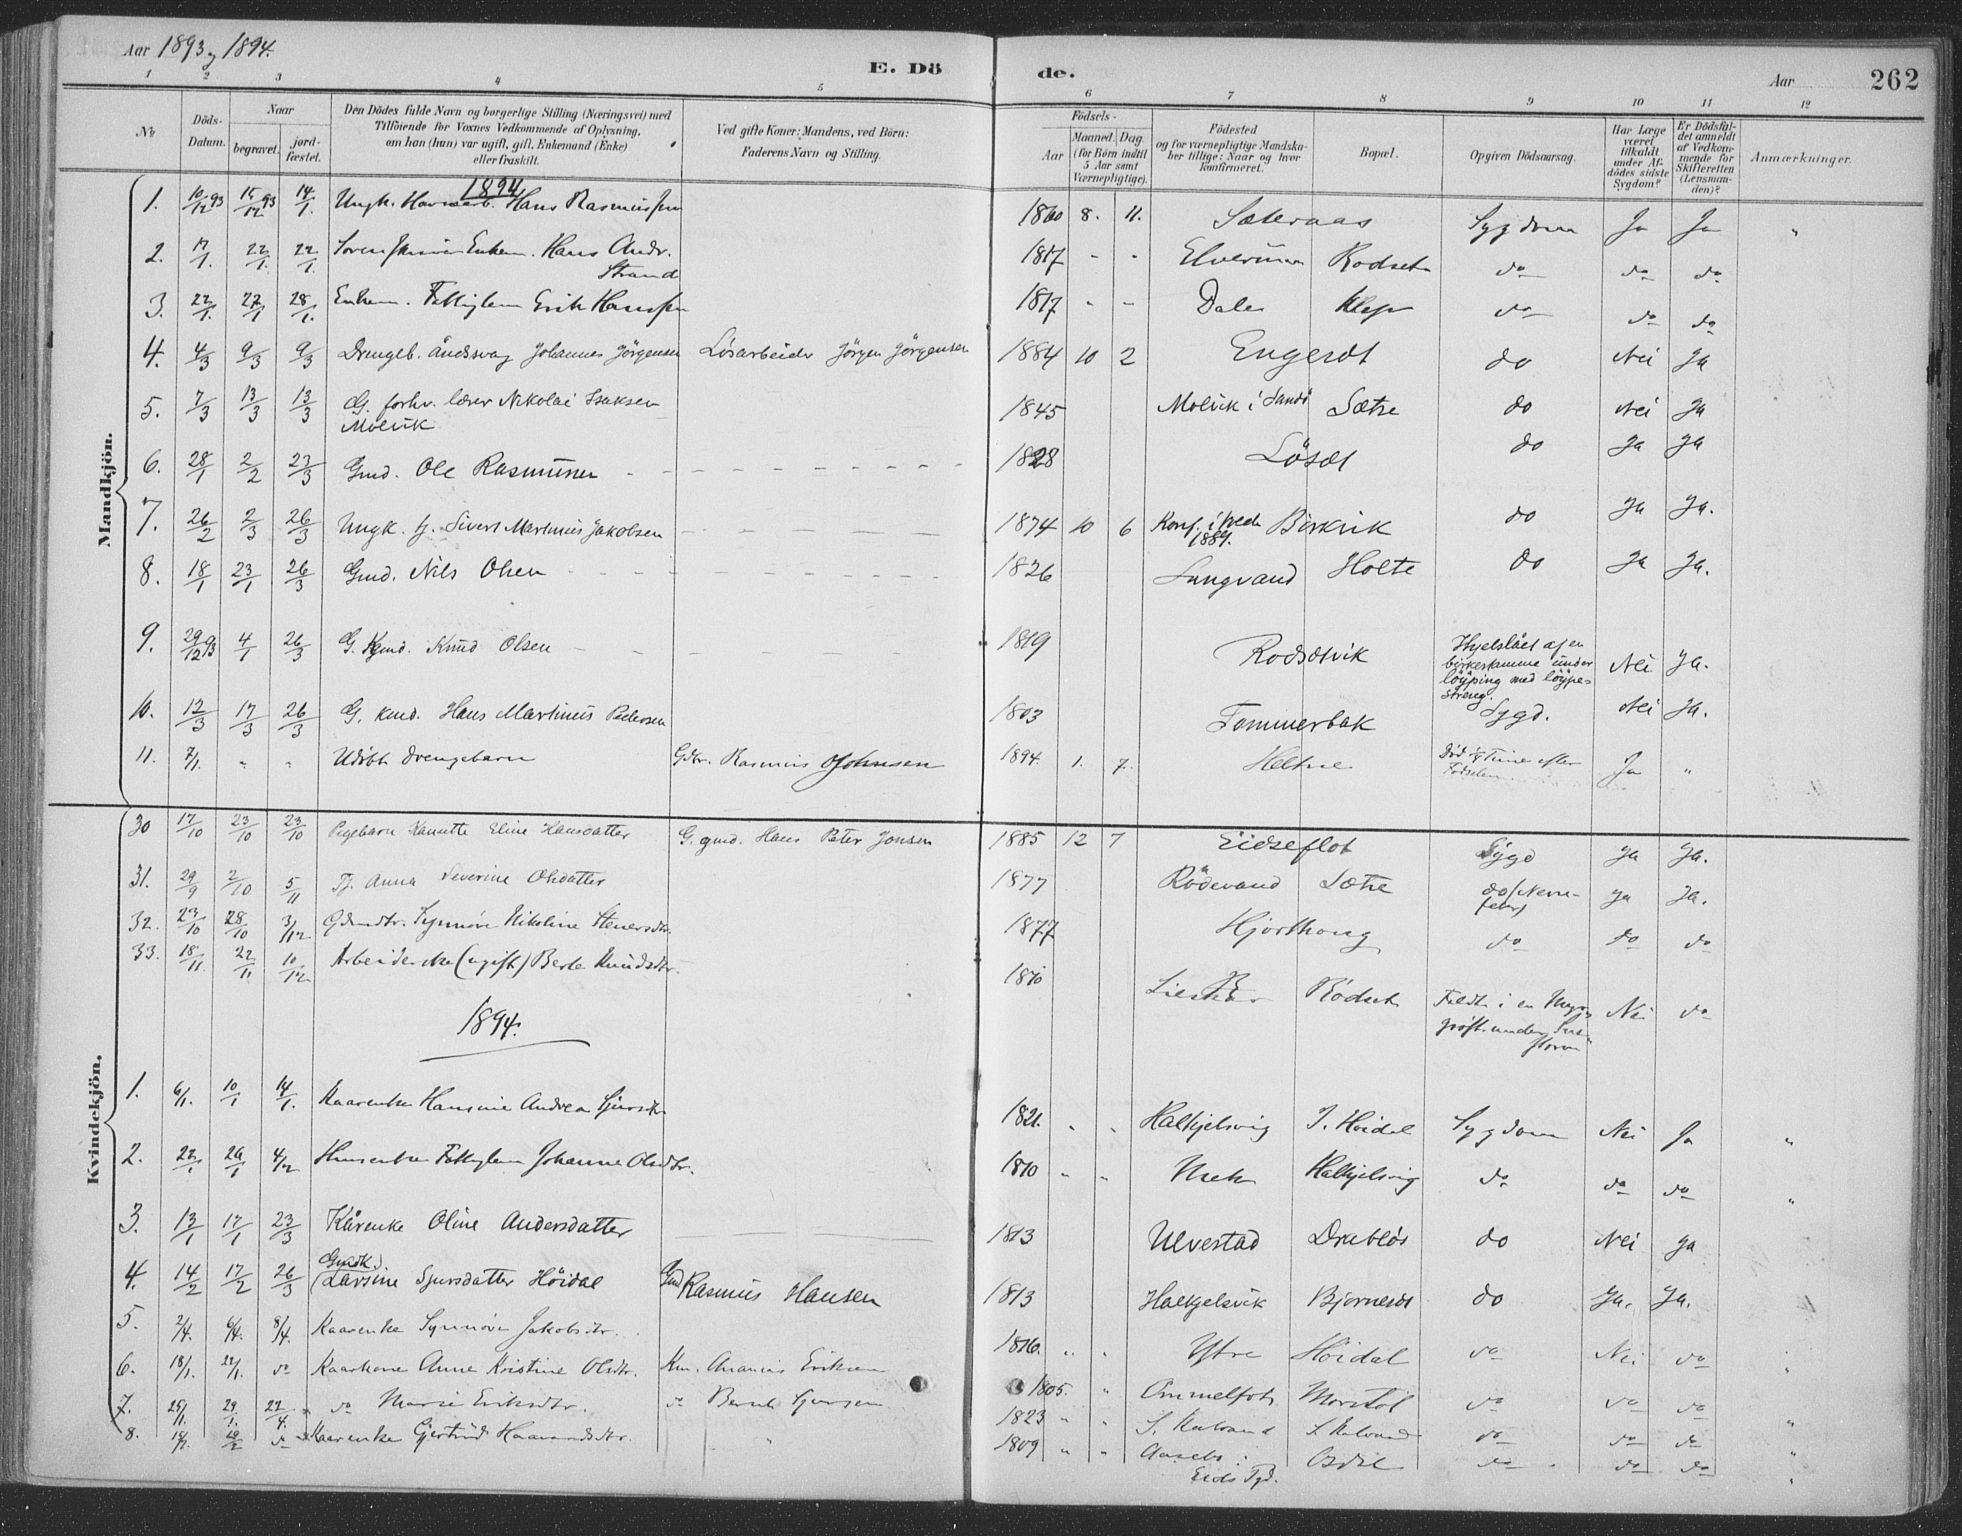 Aar 1893 og 1894.
E. Dö de.
Aar 262
1 2 3 4 5 6 7 8 9 10 11 12
No
Döds-Datum.
Naar
begravet.
jordfæstet.
Den Dödes fulde Navn og borgerlige Stilling (Næringsvei) med
Tilföiende for Voxnes Vedkommende af Oplysning,
om han (hun) var ugift, gift, Enkemand (Enke)
eller fraskilt.
Ved gifte Koner: Mandens, ved Börn:
Faderens Navn og Stilling.
Födsels-
Aar
Maaned. Dag.
(for Börn indtil 5 Aar samt Værnepligtige).
Födested
og for værnepligtige Mandskaber tillige: Naar og hvor konfirmeret.
Bopæl.
Opgiven Dödsaarsag.
Har Læge været tilkaldt under Afdödes sidste Sygdom?
Er Dödsfaldet anmeldt af Vedkommende for Skifteretten (Lensmanden)?
Anmærkninger.
Mandkjön.
1894
1. 10/12 93 15/12 93 14/1. Ungk. Hans Rasmussen 1860 8. 11. Sæteraas Sygdom Ja Ja "
2. 17/1. 22/1. 22/1. Enkem. Hans Andr. Strand 1817 - - Rodset do do do
3. 22/1. 27/1 28/1. Enkem. Erik Hanssen 1817 - - Dale Klep do do do
4. 4/3 9/3 9/3 Drengeb. åndsvag Johannes Jörgensen Lösarbeider Jörgen Jörgensen 1884 10 2 Engeset do Nei Ja
5. 7/3 13/3 13/3 G. forhv. lærer Nikolai Isaksen Molvik 1845 Molvik i Sandö Sætre do Nei Ja
6. 28/1 2/2 23/3 Gmd. Ole Rasmussen 1828 Löset do Ja Ja
7. 26/2 2/3 26/3 Ungk. tj. Sivert Martinus Jakobsen 1874 10 6 Konf. i 1889. Birkvik do Ja Ja.
8. 18/1 23/1 26/3 Gmd. Nils Olsen 1826 Langvand Holte do Ja Ja.
9. 29/12 93 4/1 26/3 G. Kmd. Knud Olsen 1819 Rodsetvik Ihjelslået af en birkestamme under löjping med löjpestreng. Nei Ja.
10. 12/3 17/3 26/3 G. kmd. Hans Martinus Pedersen 1803 Tommerbak Sygd. Nei Ja.
11. 7/1. " " Udöbt drengebarn Gbr. Rasmus Johnsen 1894. 1. 7. Heltne Död Time efter Födselen Ja "
Kvindekjön.
30 17/10 23/10 23/10 Pigebarn Hanette Eline Hansdatter G. gmd. Hans Peter Jonsen 1885 12 7 Eidseflot Sygd Ja Ja.
31. 29/9 2/10 5/11 Tj. Anna Severine Olsdatter 1877 Rödevand Sætre do (Nervefeber) Ja Ja.
32. 23/10 28/10 3/12 Synnöve Nikoline Stenersdtr. 1877 Hjorthoug do do do
33. 18/11. 22/11 10/12 Arbeiderske (ugift) Berte Knudsdtr. 1870 Lieskar Rödset Faldt i en under Snestorm Nei do
1894.
1. 6/1. 10/1 14/1. Kaarenke Hansine Andrea Sjursdtr. 1821. " " Halkjelsvig I. Höidal Sygdom Nei Ja "
2. 22/1 26/1 4/2 Johanne Olsdtr. 1810 " " Halkjelsvig do do do "
3. 13/1 17/1 23/3 Kårenke Oline Andersdatter 1813 Ulvestad Drablös do Nei Ja
4. 14/2 17/2 26/3 (Gmdk.) Larsine Sjursdatter Höidal Gmd Rasmus Hansen 1813 Halkjelsvik Bjørneset do Ja. Ja.
5. 2/4. 6/4. 8/4. Kaarenke Synnöve Jakobsdtr. 1816. " " Ytre Höidal do Nei do "
6. 18/1. 22/1. do Kaarkone Anne Kristine Olsdtr. Km. Ananias Eriksen 1805. " Ommelfot Morstöl do do do "
7. 25/1. 29/1. 22/4. do Marie Eriksdtr. do Bernt Sjursen 1823 " " I. Kalvand I. Kalvand do do do "
8. 29/2 do Kaarenke Gjertrud Haavardsdtr. " 1809 " " Aaseb. i Eids Pgd. Osdal do do do "